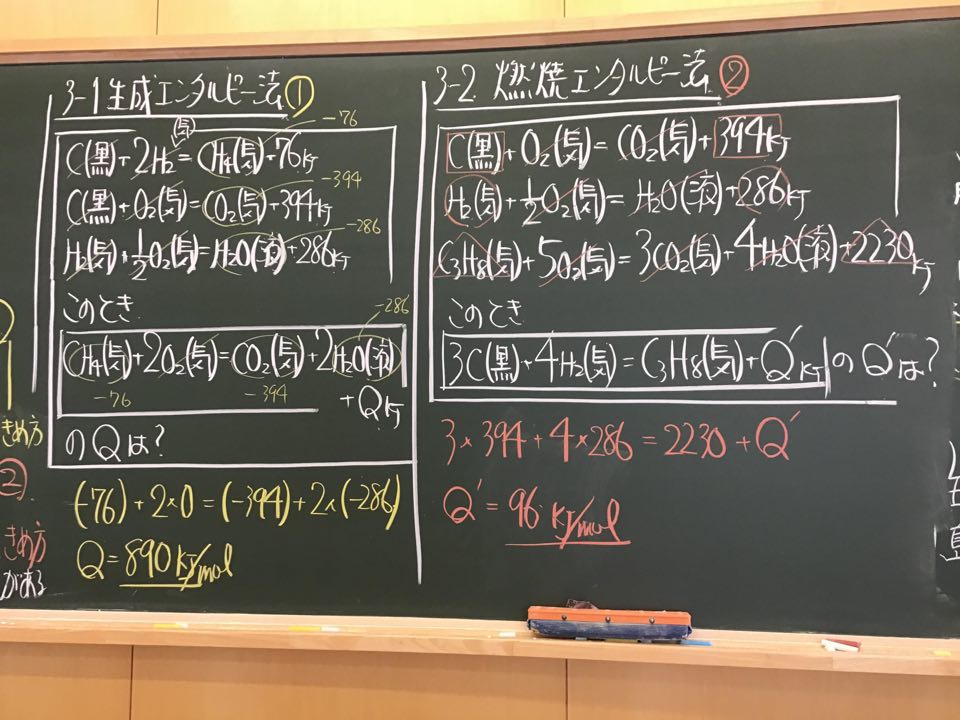 3-1 生成エンタルピー法 ①
(気)
-76
C(黒)+2H₂=CH₄(気)+76kJ
-394
C(黒)+O₂(気)=CO₂(気)+394kJ
-286
H₂(気)+½O₂(気)=H₂O(液)+286kJ
このとき
-286
CH₄(気)+2O₂(気)=CO₂(気)+2H₂O(液)
-76 -394
+QkJ
のQは?
(-76)+2×0=(-394)+2×(-286)
Q=890kJ/mol
3-2. 燃焼エンタルピー法 ②
C(黒)+O₂(気)=CO₂(気)+394kJ
H₂(気)+½O₂(気)=H₂O(液)+286kJ
C₃H₈(気)+5O₂(気)=3CO₂(気)+4H₂O(液)+2230kJ
このとき
3C(黒)+4H₂(気)=C₃H₈(気)+Q'kJ のQ'は?
3×394+4×286=2230+Q'
Q'=96kJ/mol
きめ方
②
きめ方
がある